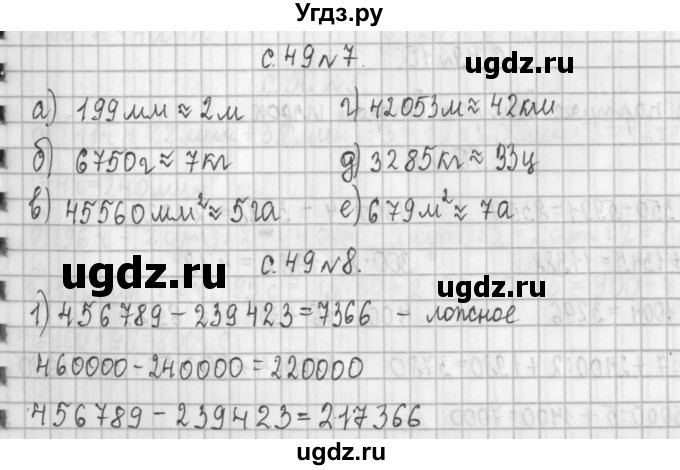 Угдз.ру
с.49 №7.
ugdz.ru
ugdz.ru
а) 199мм ≈ 2м
г) 42053м ≈ 42км
б) 6750г ≈ 7кг
д) 3285кг ≈ 33ц
в) 45560мм² ≈ 5га
е) 679м² ≈ 7а
ugdz.ru
с.49 №8.
ugdz.ru
1) 456789 - 239423 = 7366 - ложное
460000 - 240000 = 220000
456789 - 239423 = 217366
ugdz.ru
ugdz.ru